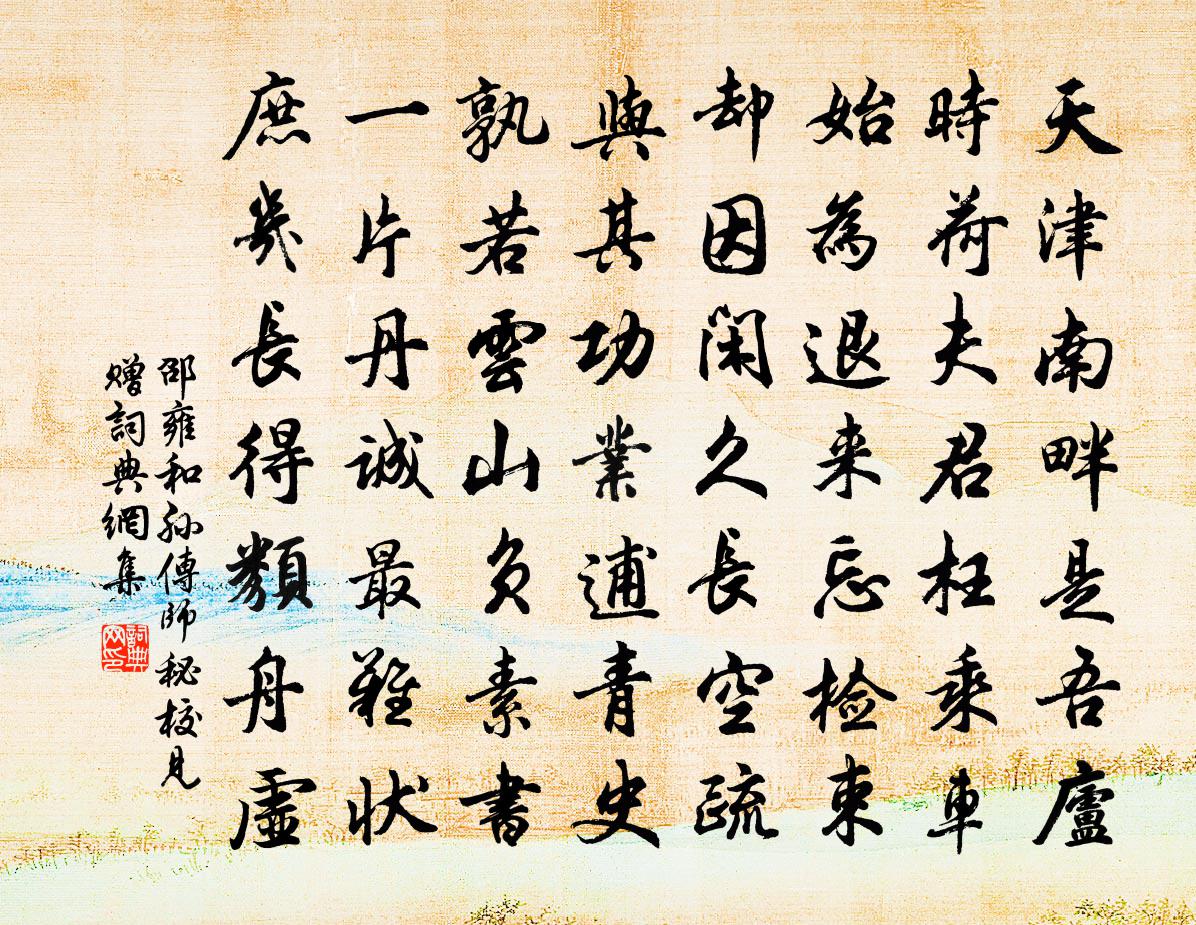 天津南畔是吾廬
時荷夫君枉乘車
始為退来忘檢束
却因閑久長空疏
與其功業逋青史
孰若雲山負素書
一片丹誠最難狀
庶幾長得類舟虛
邵雍和孙傳師秘校見
贈詞典網集
詞典网印